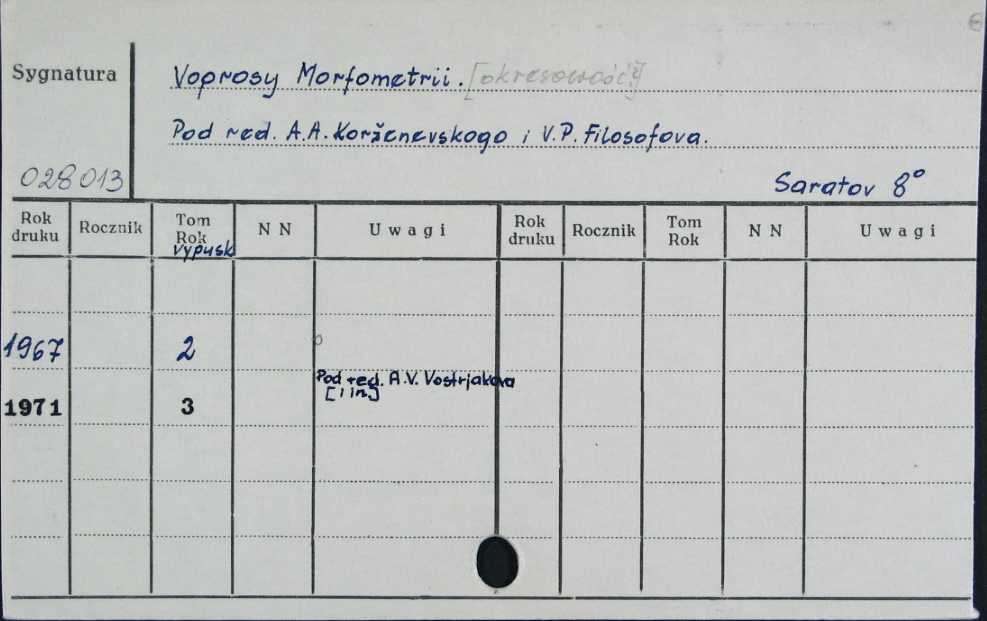 Sygnatura
Voprosy Morfometrii. [okresowość?]
Pod red. A.A. Korženevskogo i V.P. Filosofova.
028013
Saratov 8°
Rok druku Rocznik Tom Rok N N Uwagi Rok druku Rocznik Tom Rok N N Uwagi
vypusk
1967 2
Pod red. A.V. Vostrjakova
[i in.]
1971 3